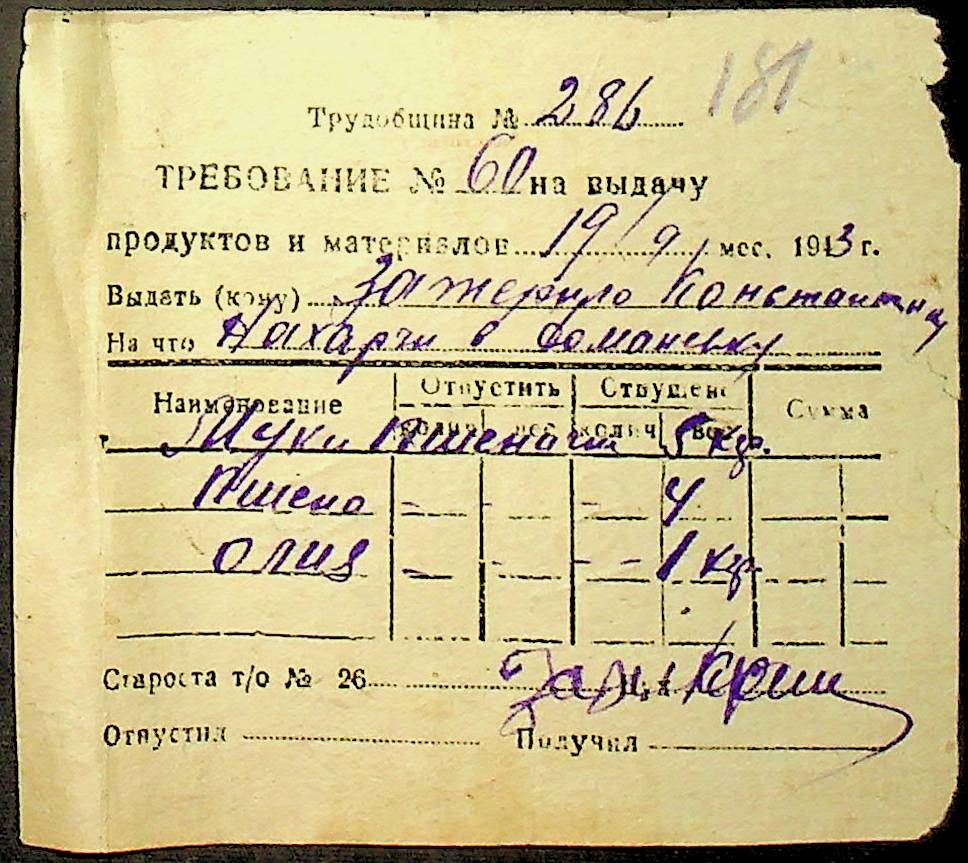 181
Трудобщина № 286
ТРЕБОВАНИЕ № 60 на выдачу
продуктов и материалов 19/9 мес. 1943 г.
Выдать (кому) Зажерило Константину
На что Нахарчи в
Наименование Отпустить Отпущено Сумма
колич вес колич вес
Муки Пшеничи 5 кгр.
Пшено - - - 4
Олия - - - - 1 кгр.
Староста т/о № 26
Отпустил Получил